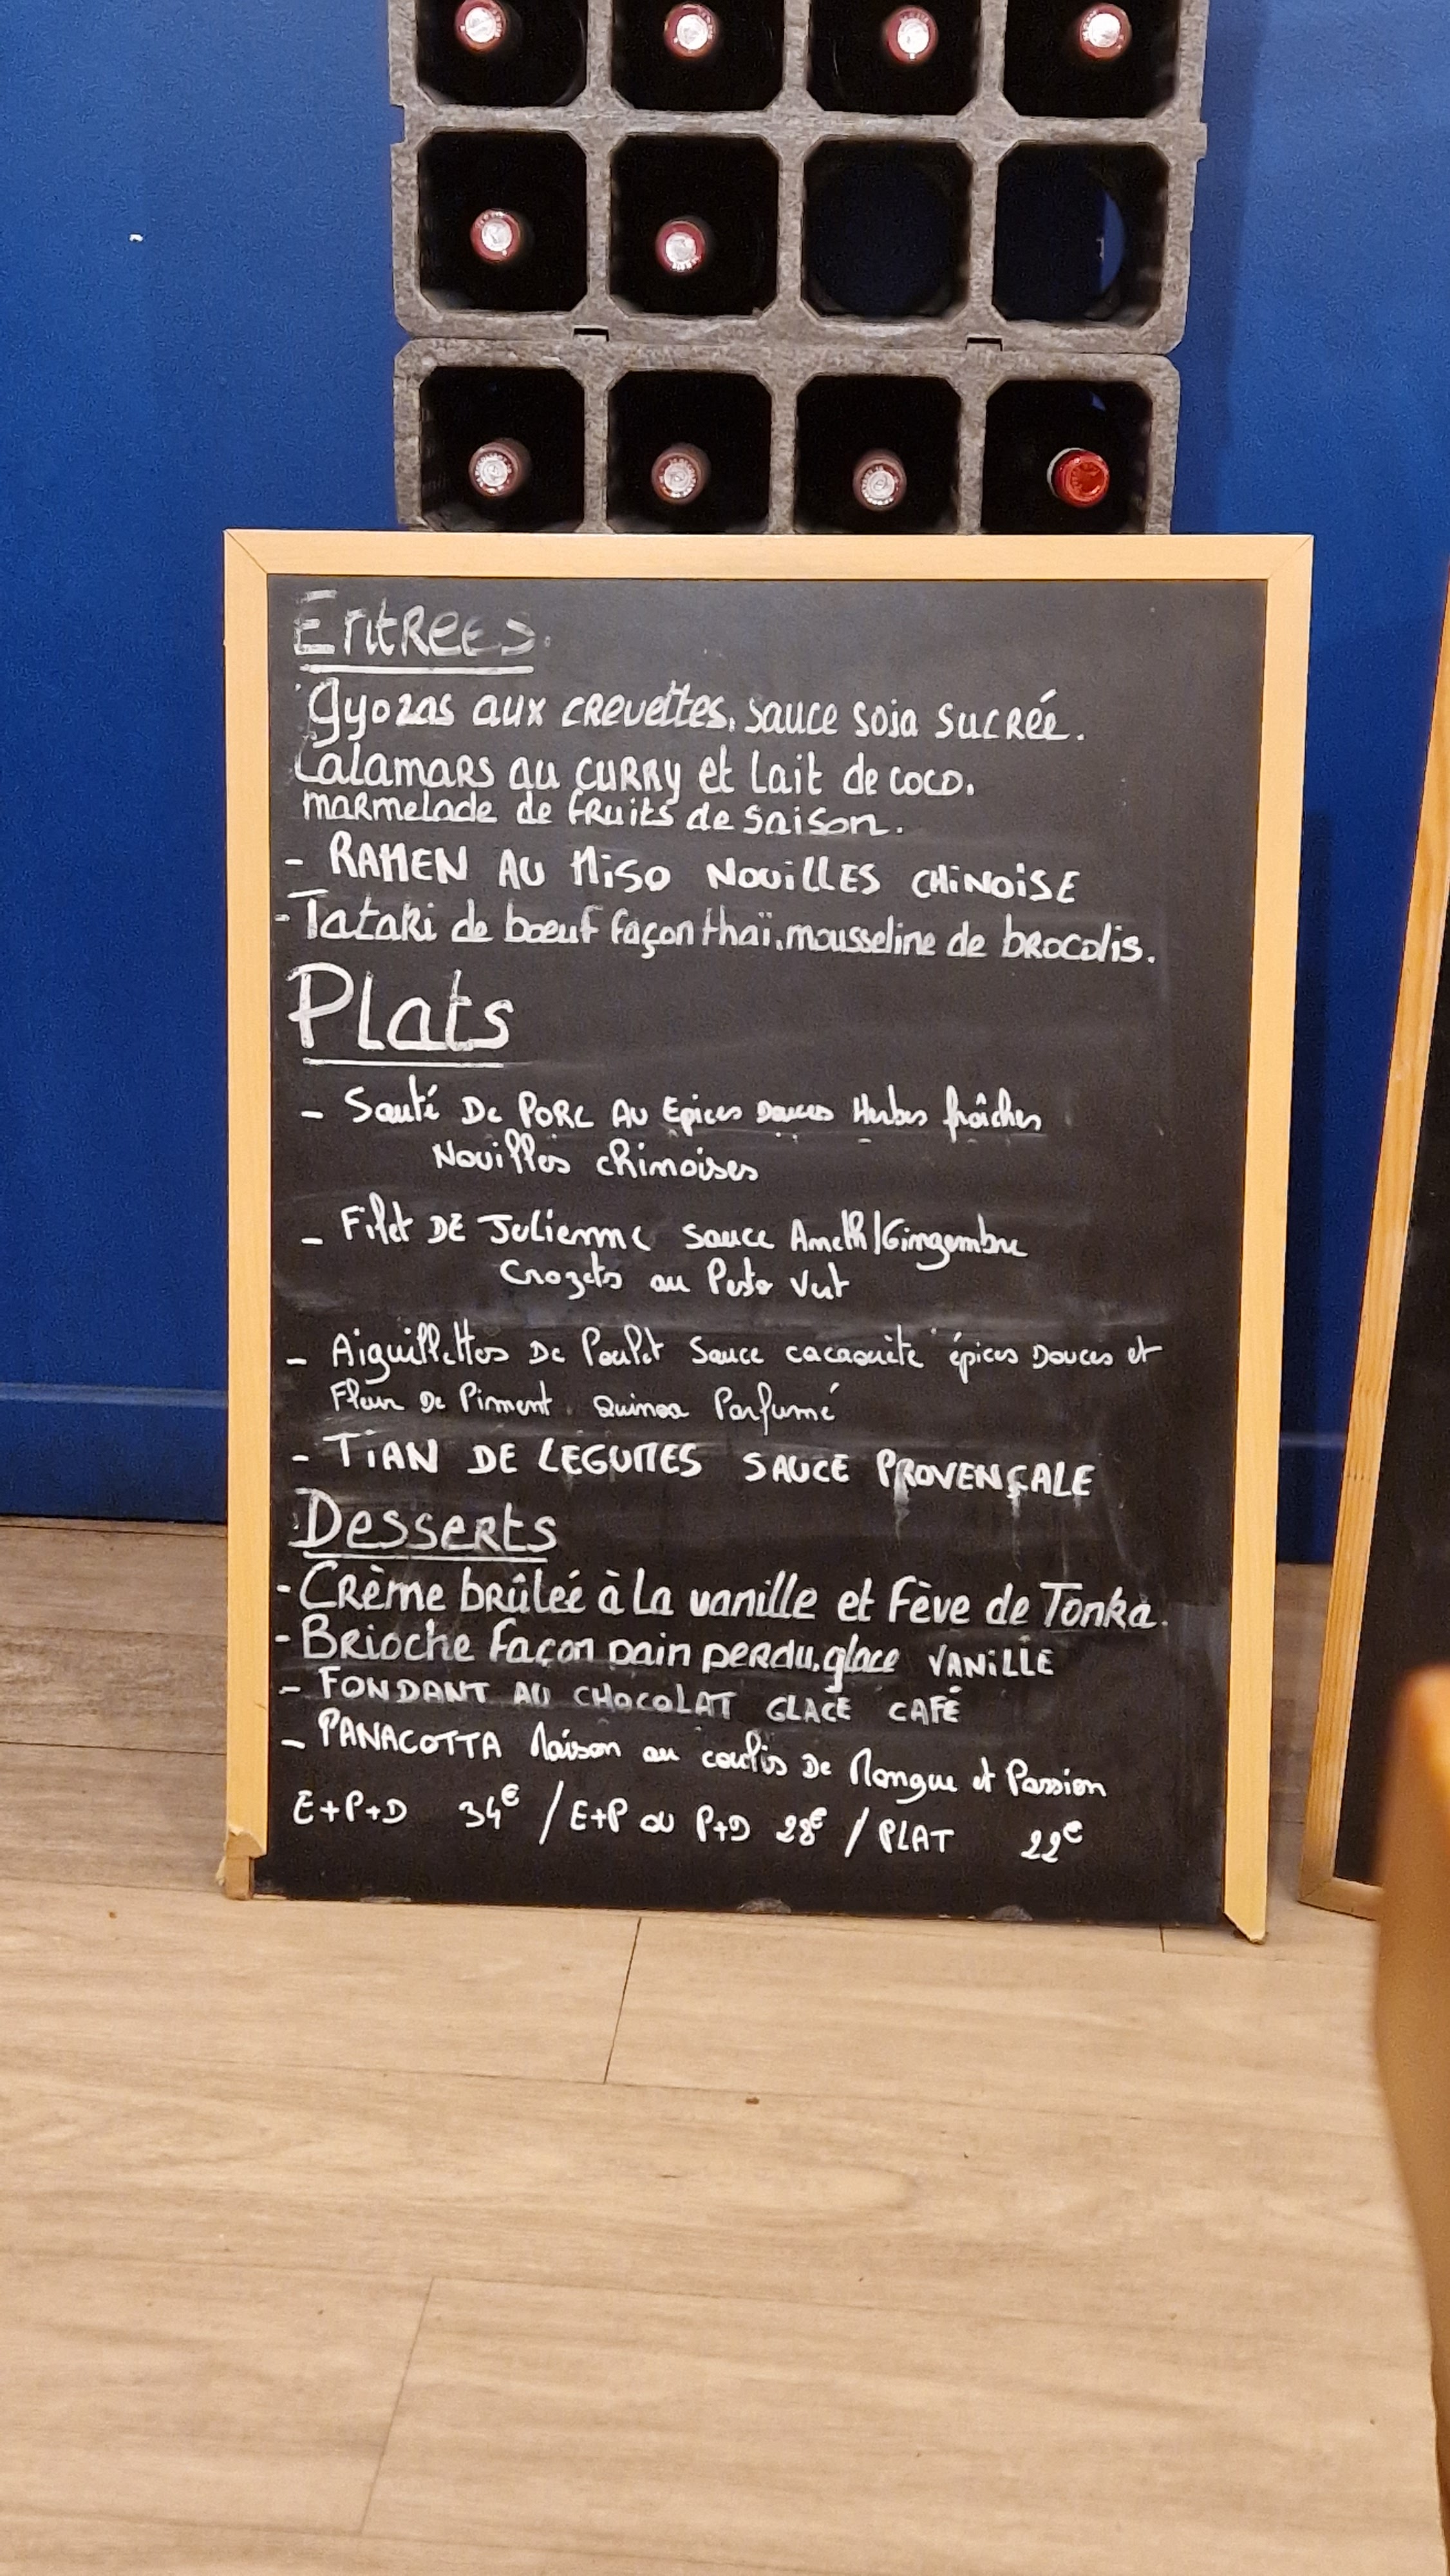 Entrees.
Gyozas aux crevettes, sauce soja sucrée.
Calamars au curry et lait de coco.
marmelade de fruits de saison.
- RAMEN AU MISO NOUILLES CHINOISE
- Tataki de bœuf façon thaï, mousseline de brocolis.
Plats
- Sauté De PORC AU Epices Douces Herbes fraîches
Nouilles chinoises
- Filet DE Julienne Sauce Aneth/Gingembre
Crozets au Pesto Vert
- Aiguillettes De Poulet Sauce cacaouète épices Douces et
Fleur De Piment. Quinoa Parfumé
- TIAN DE LEGUMES SAUCE PROVENÇALE
Desserts
- Crème brûlée à la vanille et Fève de Tonka.
- Brioche façon pain perdu, glace VANILLE
- FONDANT AU CHOCOLAT GLACE CAFÉ
- PANACOTTA Maison au coulis De Mangue et Passion
E+P+D 34€ / E+P OU P+D 28€ / PLAT 22€